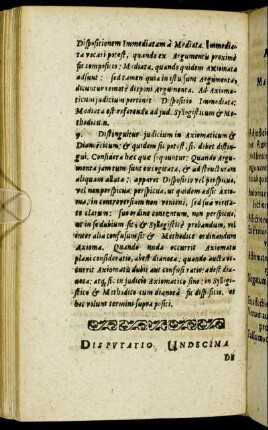 Dispositionem Immediatam à Mediata. Immedia-
ta vocari potest, quando ex Argumentis proximè
sit compositio: Mediata, quando quidem Axiomata
adsunt: sed tamen quia in istis sunt Argumenta,
dicuntur remotè disponi Argumenta. Ad Axioma-
ticum judicium pertinet Dispositio Immediata:
Mediata est referenda ad jud. Syllogisticum & Me-
thodicum.
9. Distinguitur judicium in Axiomaticum &
Dianoëticum; & quidem sic potest, si. debet distin-
gui. Considera hæc quæ sequuntur: Quando Argu-
menta jam rum sunt excogitata, & ad structuram
aliquam allata: apparet Dispositio vel perspicua,
vel non perspicua: perspicua, ut quidem adsit Axio-
ma, in controversiam non veniens, sed sua verita-
te clarum: suo ordine contentum, non perspicua,
ut in dubium sit, & Syllogisticè probandum, vel
inter alia confusum sit: & Methodicè ordinandum
Axioma. Quando nuda occurrit Axiomatis
plani consideratio, abest dianoea; quando aucta oc-
currit Axiomatis dubii aut confusi ratio: adest dia-
noea; atq; si. in judicio Axiomatico sine: in Syllogi-
stico & Methodico cum dianoeâ sit dispositio, ut
hoc volunt termini supra positi.
DISPUTATIO UNDECIMA
DE